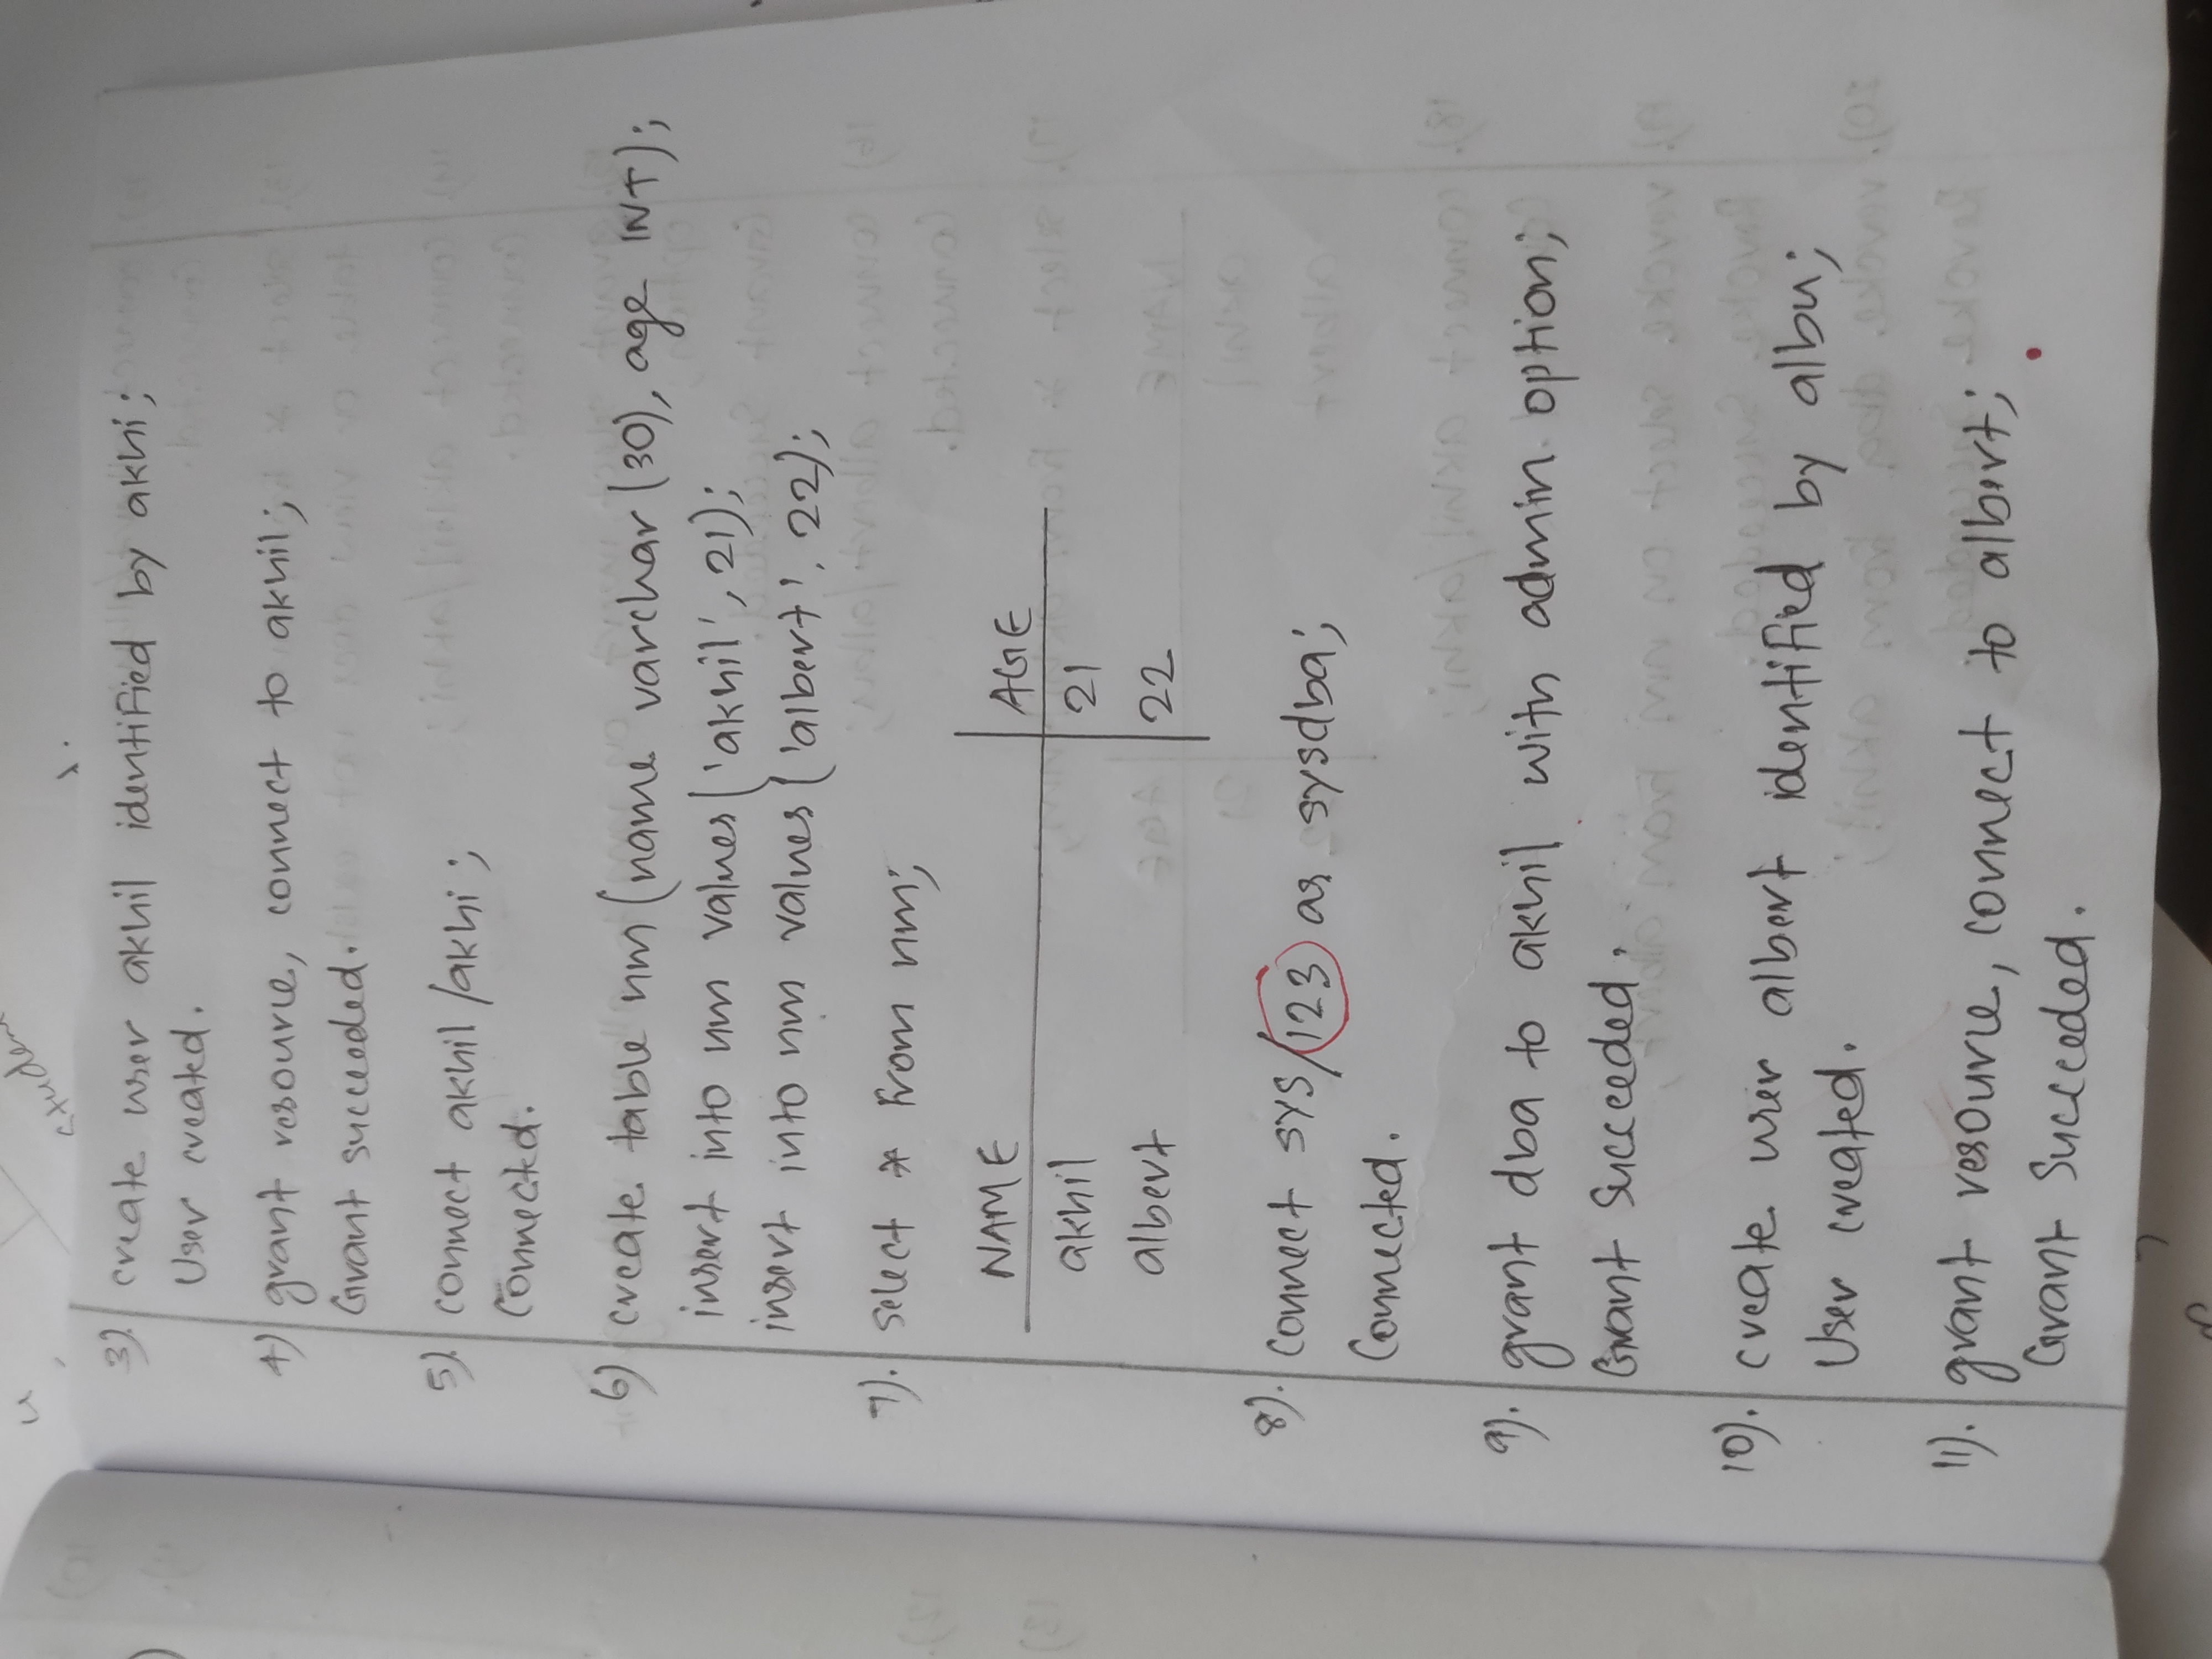 3). create user akhil identified by akhi;
User created.
4) grant resource, connect to akhil;
Grant succeeded.
5). connect akhil/akhi;
Connected.
6) create table nm(name varchar(30), age INT);
insert into nm values('akhil', 21);
insert into nm values('albert', 22);
7). select * from nm;
NAME AGE
akhil 21
albert 22
8). connect sys/123 as sysdba;
Connected.
9). grant dba to akhil with admin option;
Grant Succeeded.
10). create user albert identified by albu;
User created.
11). grant resource, connect to albert;
Grant Succeeded.